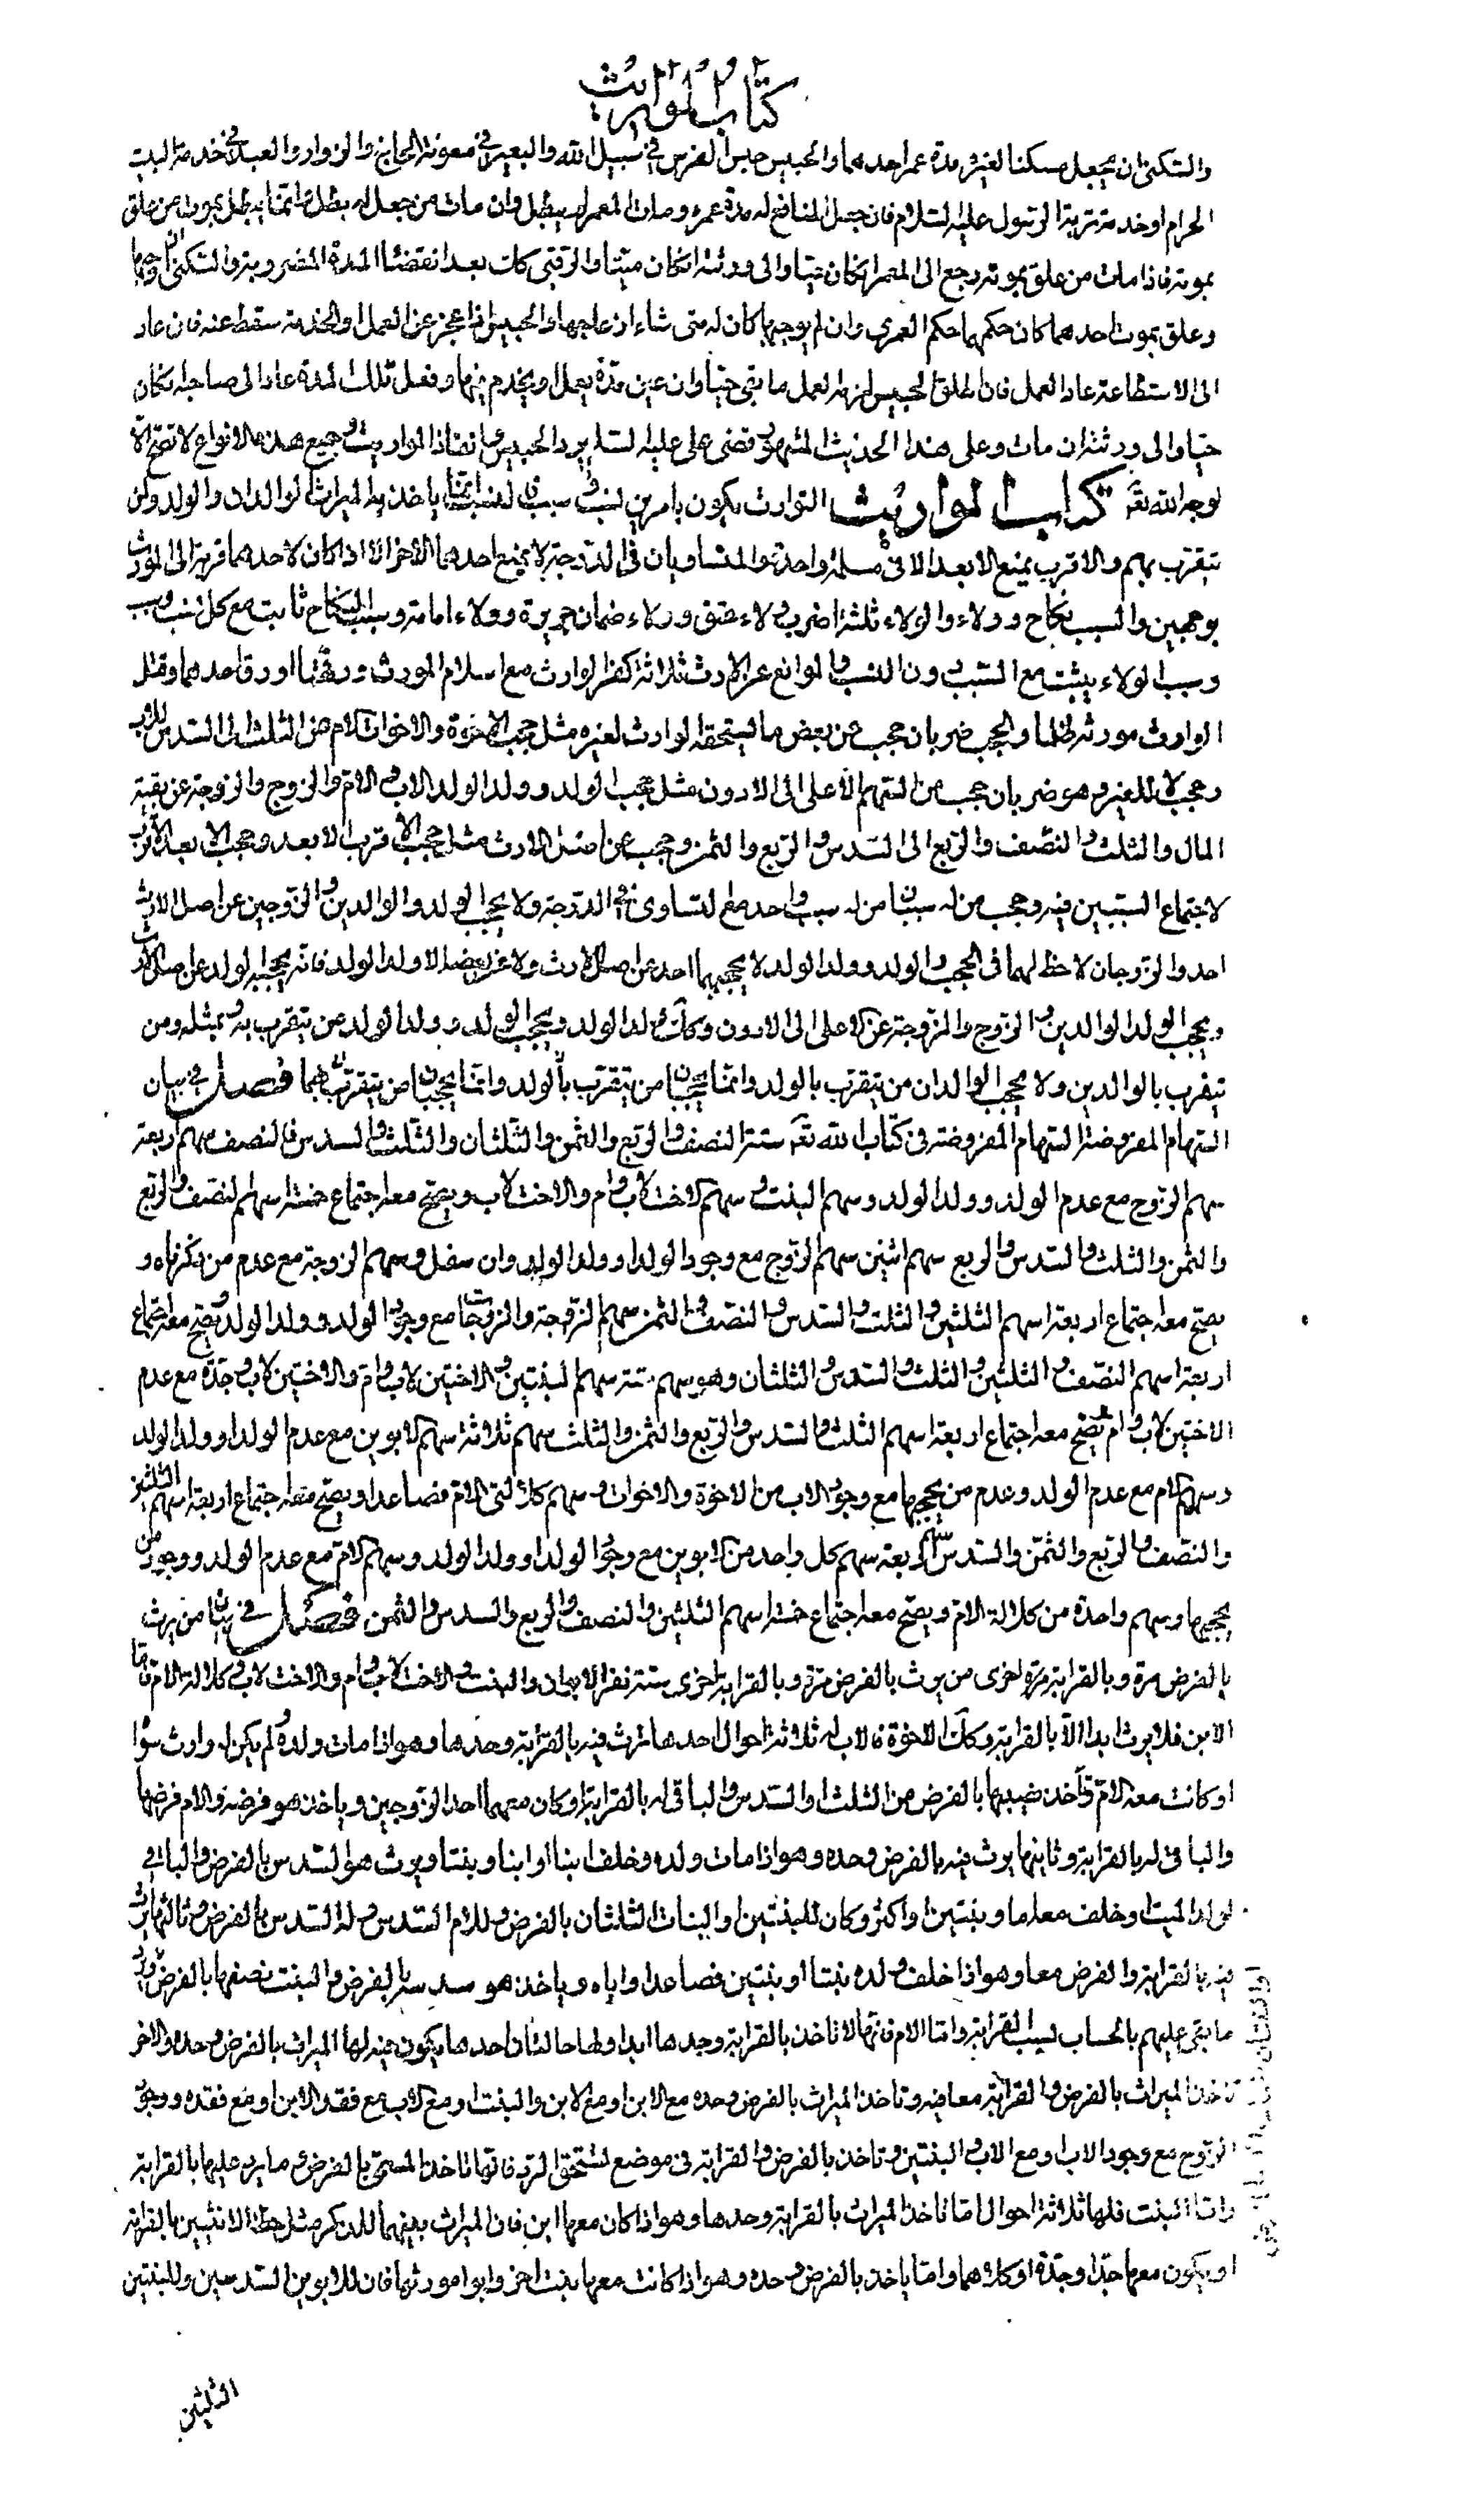 كتاب المواريث
والسكنى ان يجعل مسكنا لغيره مدة عمر احدهما والحبيس حبس الفرس في سبيل الله والبعير في معونة الحاج والزوار والعبد في خدمة البيت
الحرام او خدمة تربة الرسول عليه السلام فان جعل المنافع له مدة عمره ومات المعمر لم يبطل وان مات من جعل له بطل وانما يبطل بموت من علق
بموته فاذا مات من علق بموته رجع الى المعمر ان كان حيا والى ورثته ان كان ميتا والرقبى كانت بعد انقضاء المدة المضروبة والسكنى ان اوجبها
وعلق بموت احدهما كان حكمها حكم العمرى وان لم يوجبها كان له متى شاء ازعاجها والحبيس اذا عجز عن العمل او الخدمة سقط عنه فان عاد
الى الاستطاعة عاد العمل فان اطلق الحبيس لزمه العمل ما بقى حيا وان عين مدة يعمل ويخدم فيها وفعل تلك المدة عاد الى صاحبه ان كان
حيا والى ورثته ان مات وعلى هذا الحديث المشهور قضى على عليه السلم برد الحبيس وانفاذ المواريث وجميع هذه الانواع لا تصح الا
لوجه الله تعـ كتاب المواريث التوارث يكون بامرين نسب وسبب فالنسب انما ياخذ به الميراث الوالدان والولد ومن
يتقرب بهم والاقرب يمنع الابعد الا فى مسئلة واحدة والمتساويان فى الدرجة لا يمنع احدهما الاخر الا اذا كان لاحدهما قربة الى المورث
بوجهين والسبب نكاح وولاء والولاء ثلثة اضرب ولاء عتق وولاء ضمان جريرة وولاء امامة وسبب النكاح ثابت مع كل نسب وسبب
وسبب الولاء يثبت مع السبب دون النسب والموانع عن الارث ثلاثة كفر الوارث مع اسلام المورث ورقهما او رق احدهما وقتل
الوارث مورثه ظلما والحجب ضربان حجب عن بعض ما يستحقه الوارث لغيره مثل حجب الاخوة والاخوات الام من الثلث الى السدس للاب
وحجب لا للغير وهو ضربان حجب من السهم الاعلى الى الادون مثل حجب الولد وولد الولد الاب والام والزوج والزوجة عن بقية
المال والثلث والنصف والربع الى السدس والربع والثمن وحجب عن اصل الارث مثل حجب الاقرب الابعد وحجب الابعد الاقرب
لاجتماع السببين فيه وحجب من له سببان من له سبب واحد مع التساوى فى الدرجة ولا يحجب الولد والوالدين والزوجين عن اصل الارث
احد والزوجان لا حظ لهما فى الحجب والولد وولد الولد لا يحجبهما احد عن اصل الارث ولا عن بعضه الا ولد الولد فانه يحجبه الولد عن اصل الارث
ويحجب الولد الوالدين والزوج والزوجة عن الاعلى الى الادون وكذلك ولد الولد ويحجب الولد وولد الولد من يتقرب به وبمثله ومن
يتقرب بالوالدين ولا يحجب الوالدان من يتقرب بالولد وانما يحجبان من يتقرب بهما فصل في بيان
السهام المفروضة السهام المفروضة فى كتاب الله تعـ ستة النصف والربع والثمن والثلثان والثلث والسدس فالنصف سهم اربعة
سهم الزوج مع عدم الولد وولد الولد وسهم البنت وسهم الاخت لاب وام والاخت لاب ويصح معه اجتماع خمسة اسهم النصف والربع
والثمن والثلث والسدس والربع سهم اثنين سهم الزوج مع وجود الولد او ولد الولد وان سفل وسهم الزوجة مع عدم من ذكرناه و
يصح معه اجتماع اربعة اسهم الثلثين والثلث والسدس والنصف والثمن سهم الزوجة والزوجات مع وجود الولد وولد الولد ويصح معه اجتماع
اربعة اسهم النصف والثلثين والثلث والسدس والثلثان وهو سهم ستة سهم البنتين والاختين لاب وام والاختين لاب وجدة مع عدم
الاختين لاب وام يصح معه اجتماع اربعة اسهم الثلث والسدس والربع والثمن والثلث سهم ثلاثة سهم الابوين مع عدم الولد او ولد الولد
وسهم الام مع عدم الولد وعدم من يحجبها مع وجود الاب من الاخوة والاخوات وسهم كلالتى الام فصاعدا ويصح معه اجتماع اربعة اسهم الثلثين
والنصف والربع والثمن والسدس سهم اربعة سهم كل واحد من الابوين مع وجود الولد او ولد الولد وسهم الام مع عدم الولد ووجود من
يحجبها وسهم واحدة من كلالة الام ويصح معه اجتماع خمسة اسهم الثلثين والنصف والربع والسدس والثمن فصل في بيان من يرث
بالفرض مرة وبالقرابة مرة اخرى من يرث بالفرض مرة وبالقرابة اخرى ستة نفر الابوان والبنت والاخت لاب وام والاخت لاب وكلالة الام فاما
الابن فلا يرث ابدا الا بالقرابة وكذلك الاخوة فالاب له ثلاثة احوال احدها يرث فيه بالقرابة وحدها وهو اذا مات ولده ولم يكن له وارث سواه
او كانت معه الام فتأخذ نصيبها بالفرض من الثلث او السدس والباقى له بالقرابة او كان معهما احد الزوجين وياخذ هو فرضه والام فرضها
والباقى له بالقرابة وثانيها يرث فيه بالفرض وحده وهو اذا مات ولده وخلف ابنا او ابنا وبنتا ويرث هو السدس بالفرض والباقى
لولد الميت او خلف معه اما وبنتين او اكثر وكان للبنتين او البنات الثلثان بالفرض وللام السدس وله السدس بالفرض وثالثها يرث
فيه بالقرابة والفرض معا وهو اذا خلف ولده بنتا او بنتين فصاعدا واياه وياخذ هو سدسه بالفرض والبنت نصفها بالفرض ويرد
ما بقى عليهم بالحساب بسبب القرابة واما الام فانها لا تاخذ بالقرابة وحدها ابدا ولها حالتان احدهما يكون فيه لها الميراث بالفرض وحده والاخر
تاخذ الميراث بالفرض والقرابة معا فيه وتاخذ الميراث بالفرض وحده مع الابن او مع الابن والبنت او مع الاب مع فقد الابن او مع فقده ووجود
الزوج مع وجود الاب او مع الاب والبنتين وتاخذ بالفرض والقرابة فى موضع تستحق الرد فانها تاخذ المسمى بالفرض وما يرد عليها بالقرابة
واما البنت فلها ثلاثة احوال اما تاخذ الميراث بالقرابة وحدها وهو اذا كان معها ابن فان الميراث بينهما للذكر مثل حظ الانثيين بالقرابة
او يكون معها جدا وجدة او كلاهما واما ياخذ بالفرض وحده وهو اذا كانت معها بنت اخرى وابوا مورثهما فان للابوين السدسين وللبنتين
الثلثين